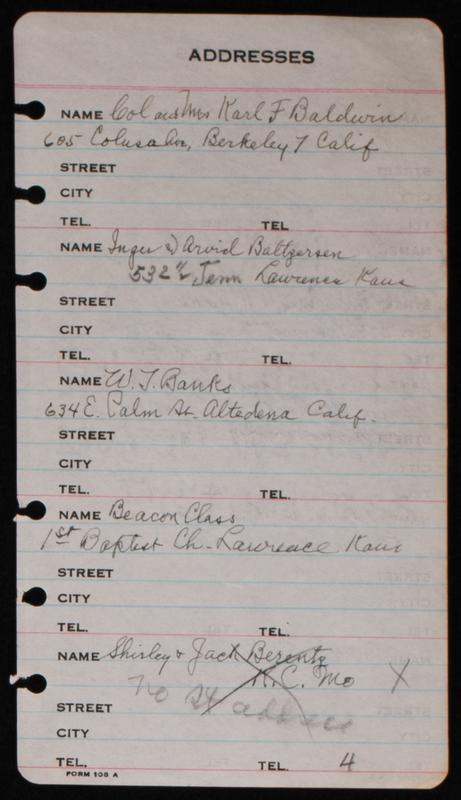 ADDRESSES
NAME Col and Mrs Karl F Baldwin
605 Colusa Av, Berkeley 7 Calif
STREET
CITY
TEL. TEL
NAME Inger & Arvid Baltzersen
532 1/2 Tenn Lawrence Kans
STREET
CITY
TEL. TEL.
NAME W. T. Banks
634 E. Palm St. Altedena Calif.
STREET
CITY
TEL. TEL.
NAME Beacon Class
1st Baptist Ch. Lawrence Kans
STREET
CITY
TEL. TEL.
NAME Shirley & Jack Berentz
K.C. Mo X
no St address
STREET
CITY
TEL. TEL. 4
FORM 106 A